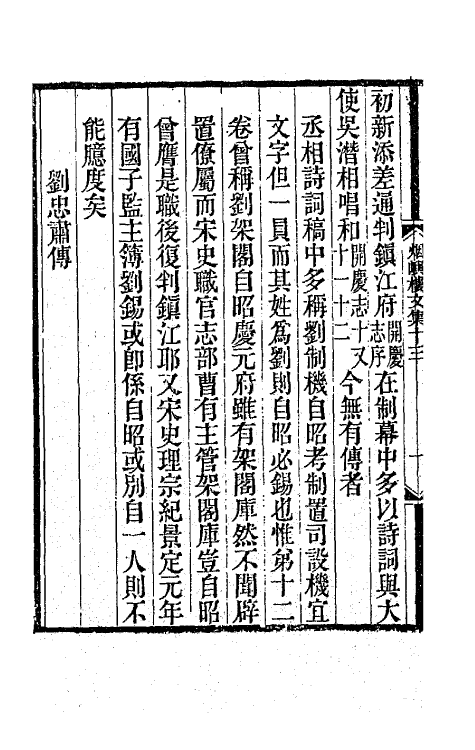 初新添差通判鎮江府開慶志序在制幕中多以詩詞與大
使吳潛相唱和開慶志十又十一十二今無有傳者
丞相詩詞稿中多稱劉制機自昭考制置司設機宜
文字但一員而其姓爲劉則自昭必錫也惟弟十二
卷曾稱劉架閣自昭慶元府雖有架閣庫然不聞辟
置僚屬而宋史職官志部曹有主管架閣庫豈自昭
曾膺是職後復判鎮江耶又宋史理宗紀景定元年
有國子監主簿劉錫或卽係自昭或別自一人則不
能臆度矣
劉忠肅傳
烟嶼樓文集十三
一